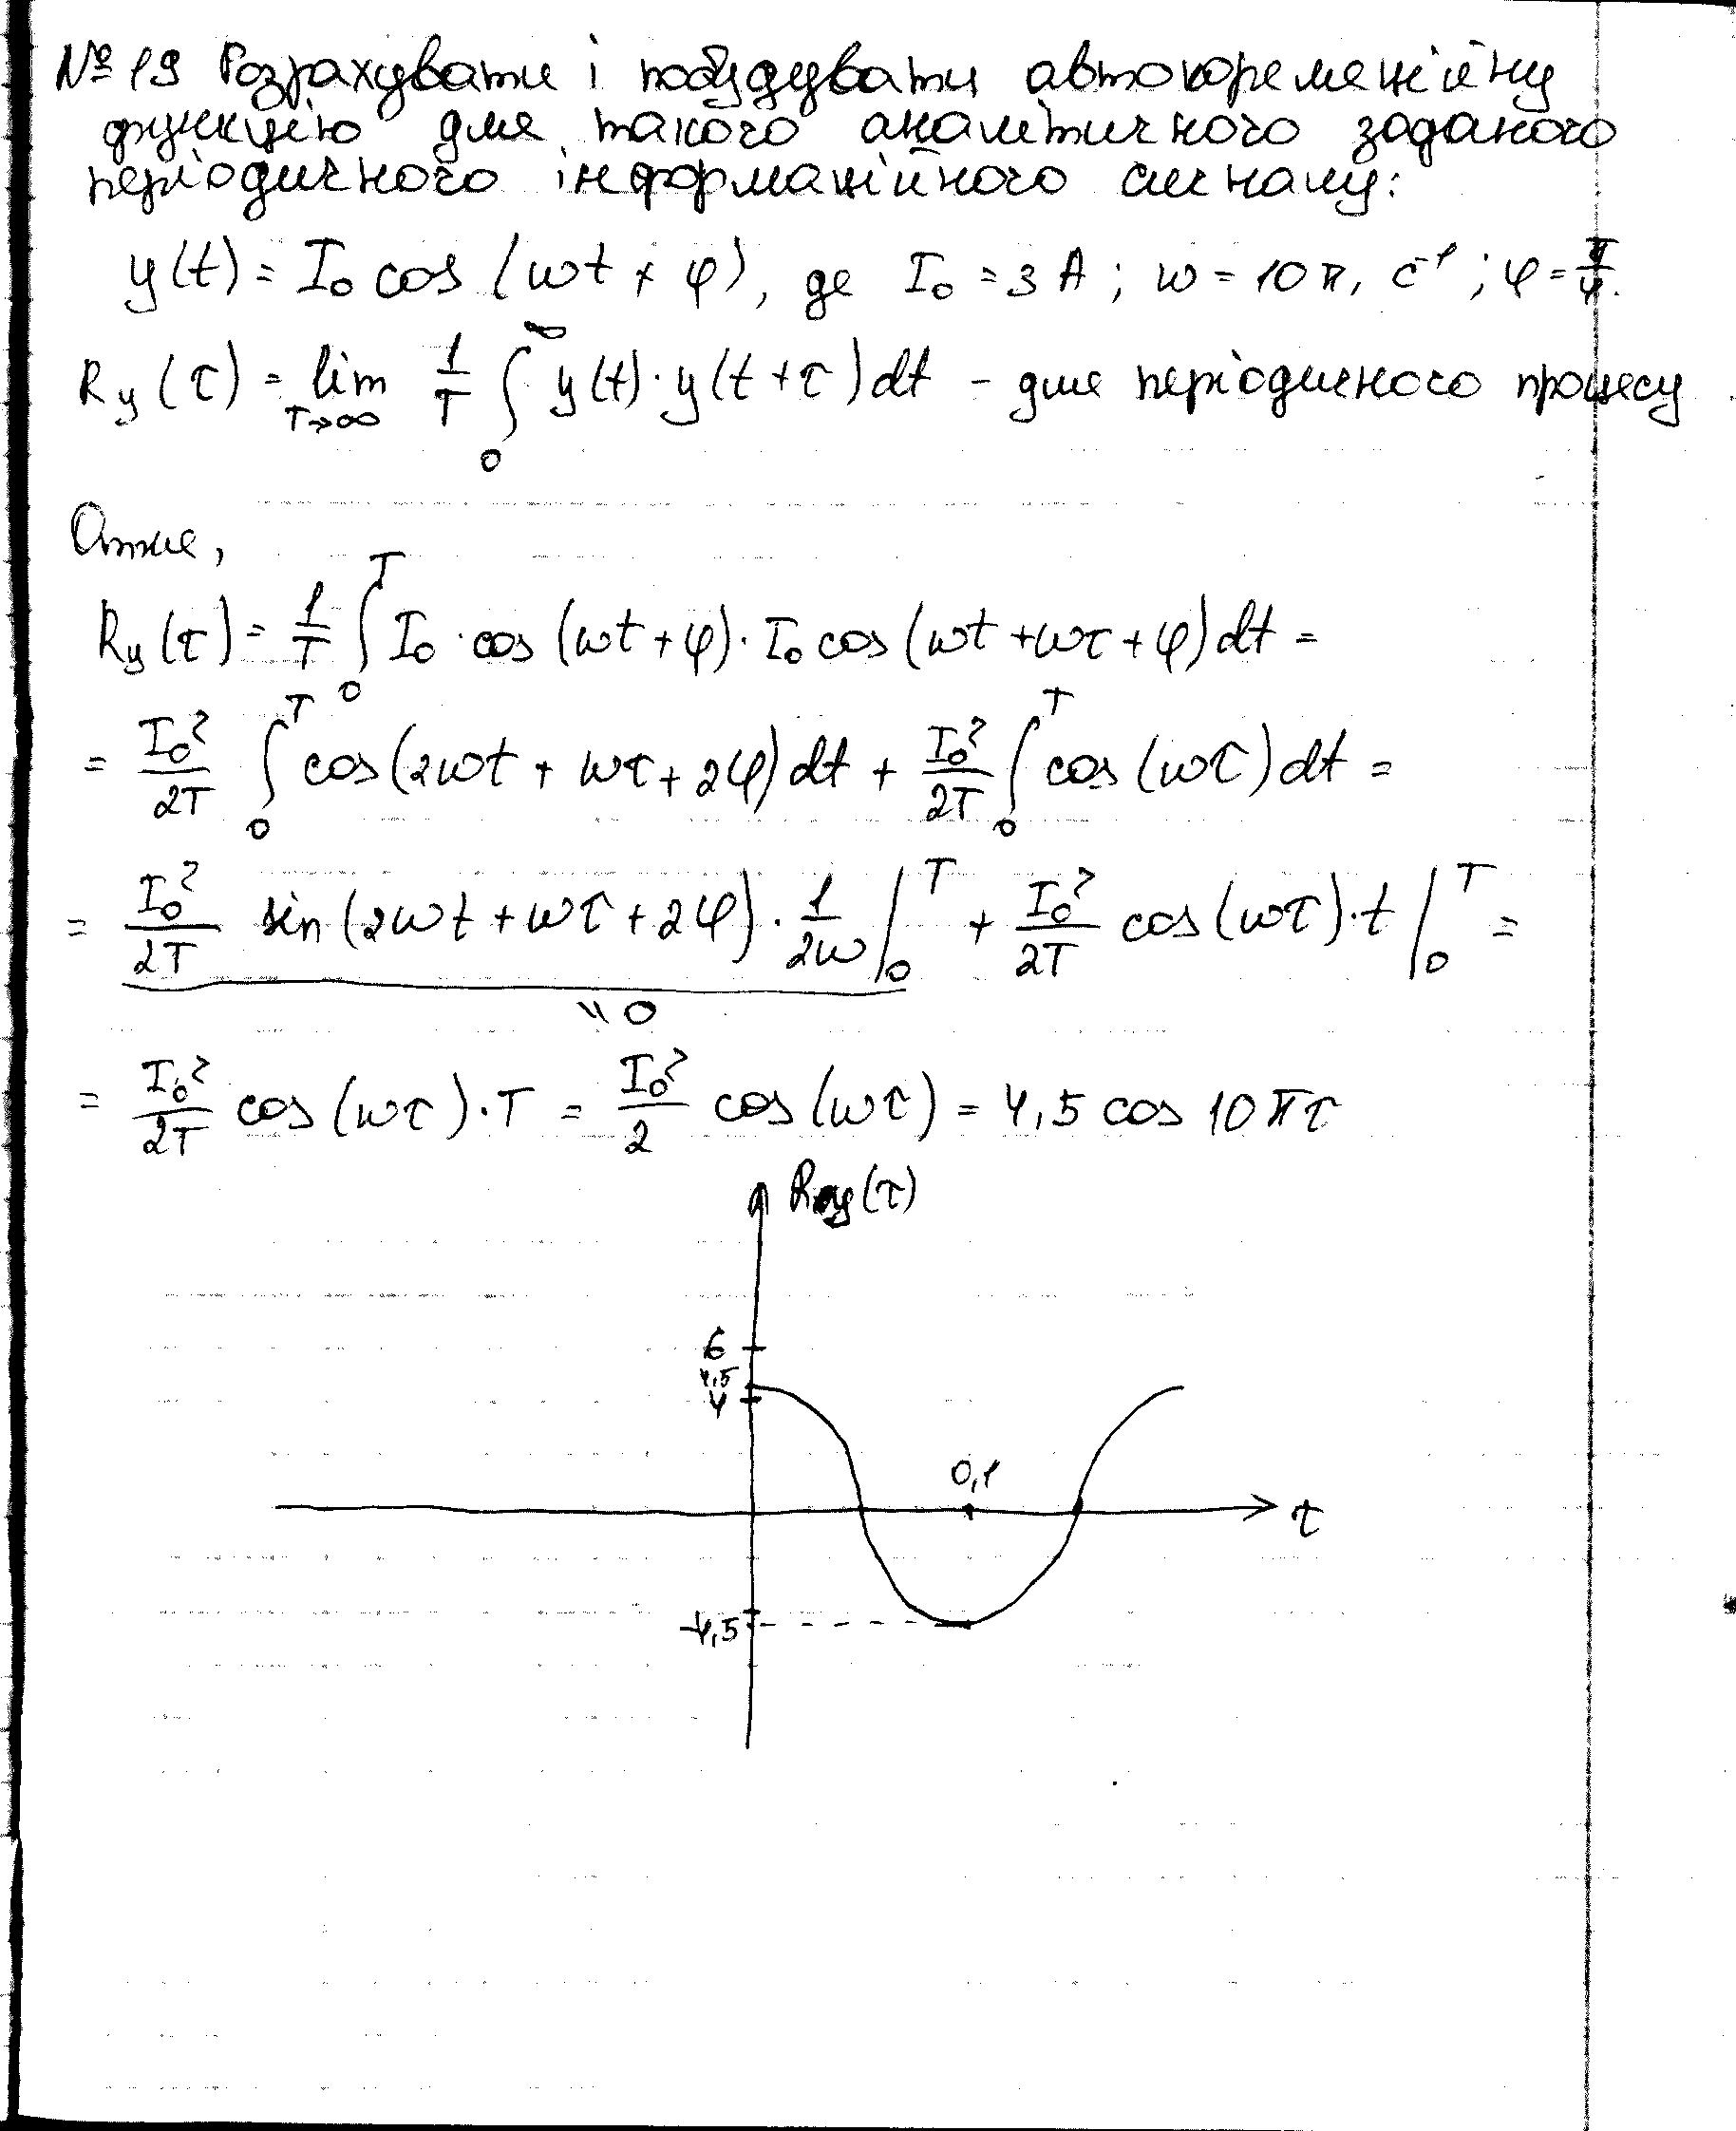 №19 Розрахувати і побудувати автокореляційну
функцію для такого аналітичного заданого
періодичного інформаційного сигналу:
y(t) = I₀ cos (ωt + φ), де I₀ = 3 А ; ω = 10π, с⁻¹ ; φ = π/4.
Ry(τ) = lim T→∞ 1/T ∫₀^∞ y(t)·y(t+τ)dt – для періодичного процесу
Отже,
Ry(τ) = 1/T ∫₀ᵀ I₀·cos(ωt+φ)·I₀ cos(ωt+ωτ+φ)dt =
= I₀²/2T ∫₀ᵀ cos(2ωt + ωτ + 2φ)dt + I₀²/2T ∫₀ᵀ cos(ωτ)dt =
= I₀²/2T sin(2ωt + ωτ + 2φ)·1/2ω |₀ᵀ + I₀²/2T cos(ωτ)·t |₀ᵀ =
" 0
= I₀²/2T cos(ωτ)·T = I₀²/2 cos(ωτ) = 4,5 cos 10πτ
Ry(τ)
6
4,5
4
0,1
τ
-4,5